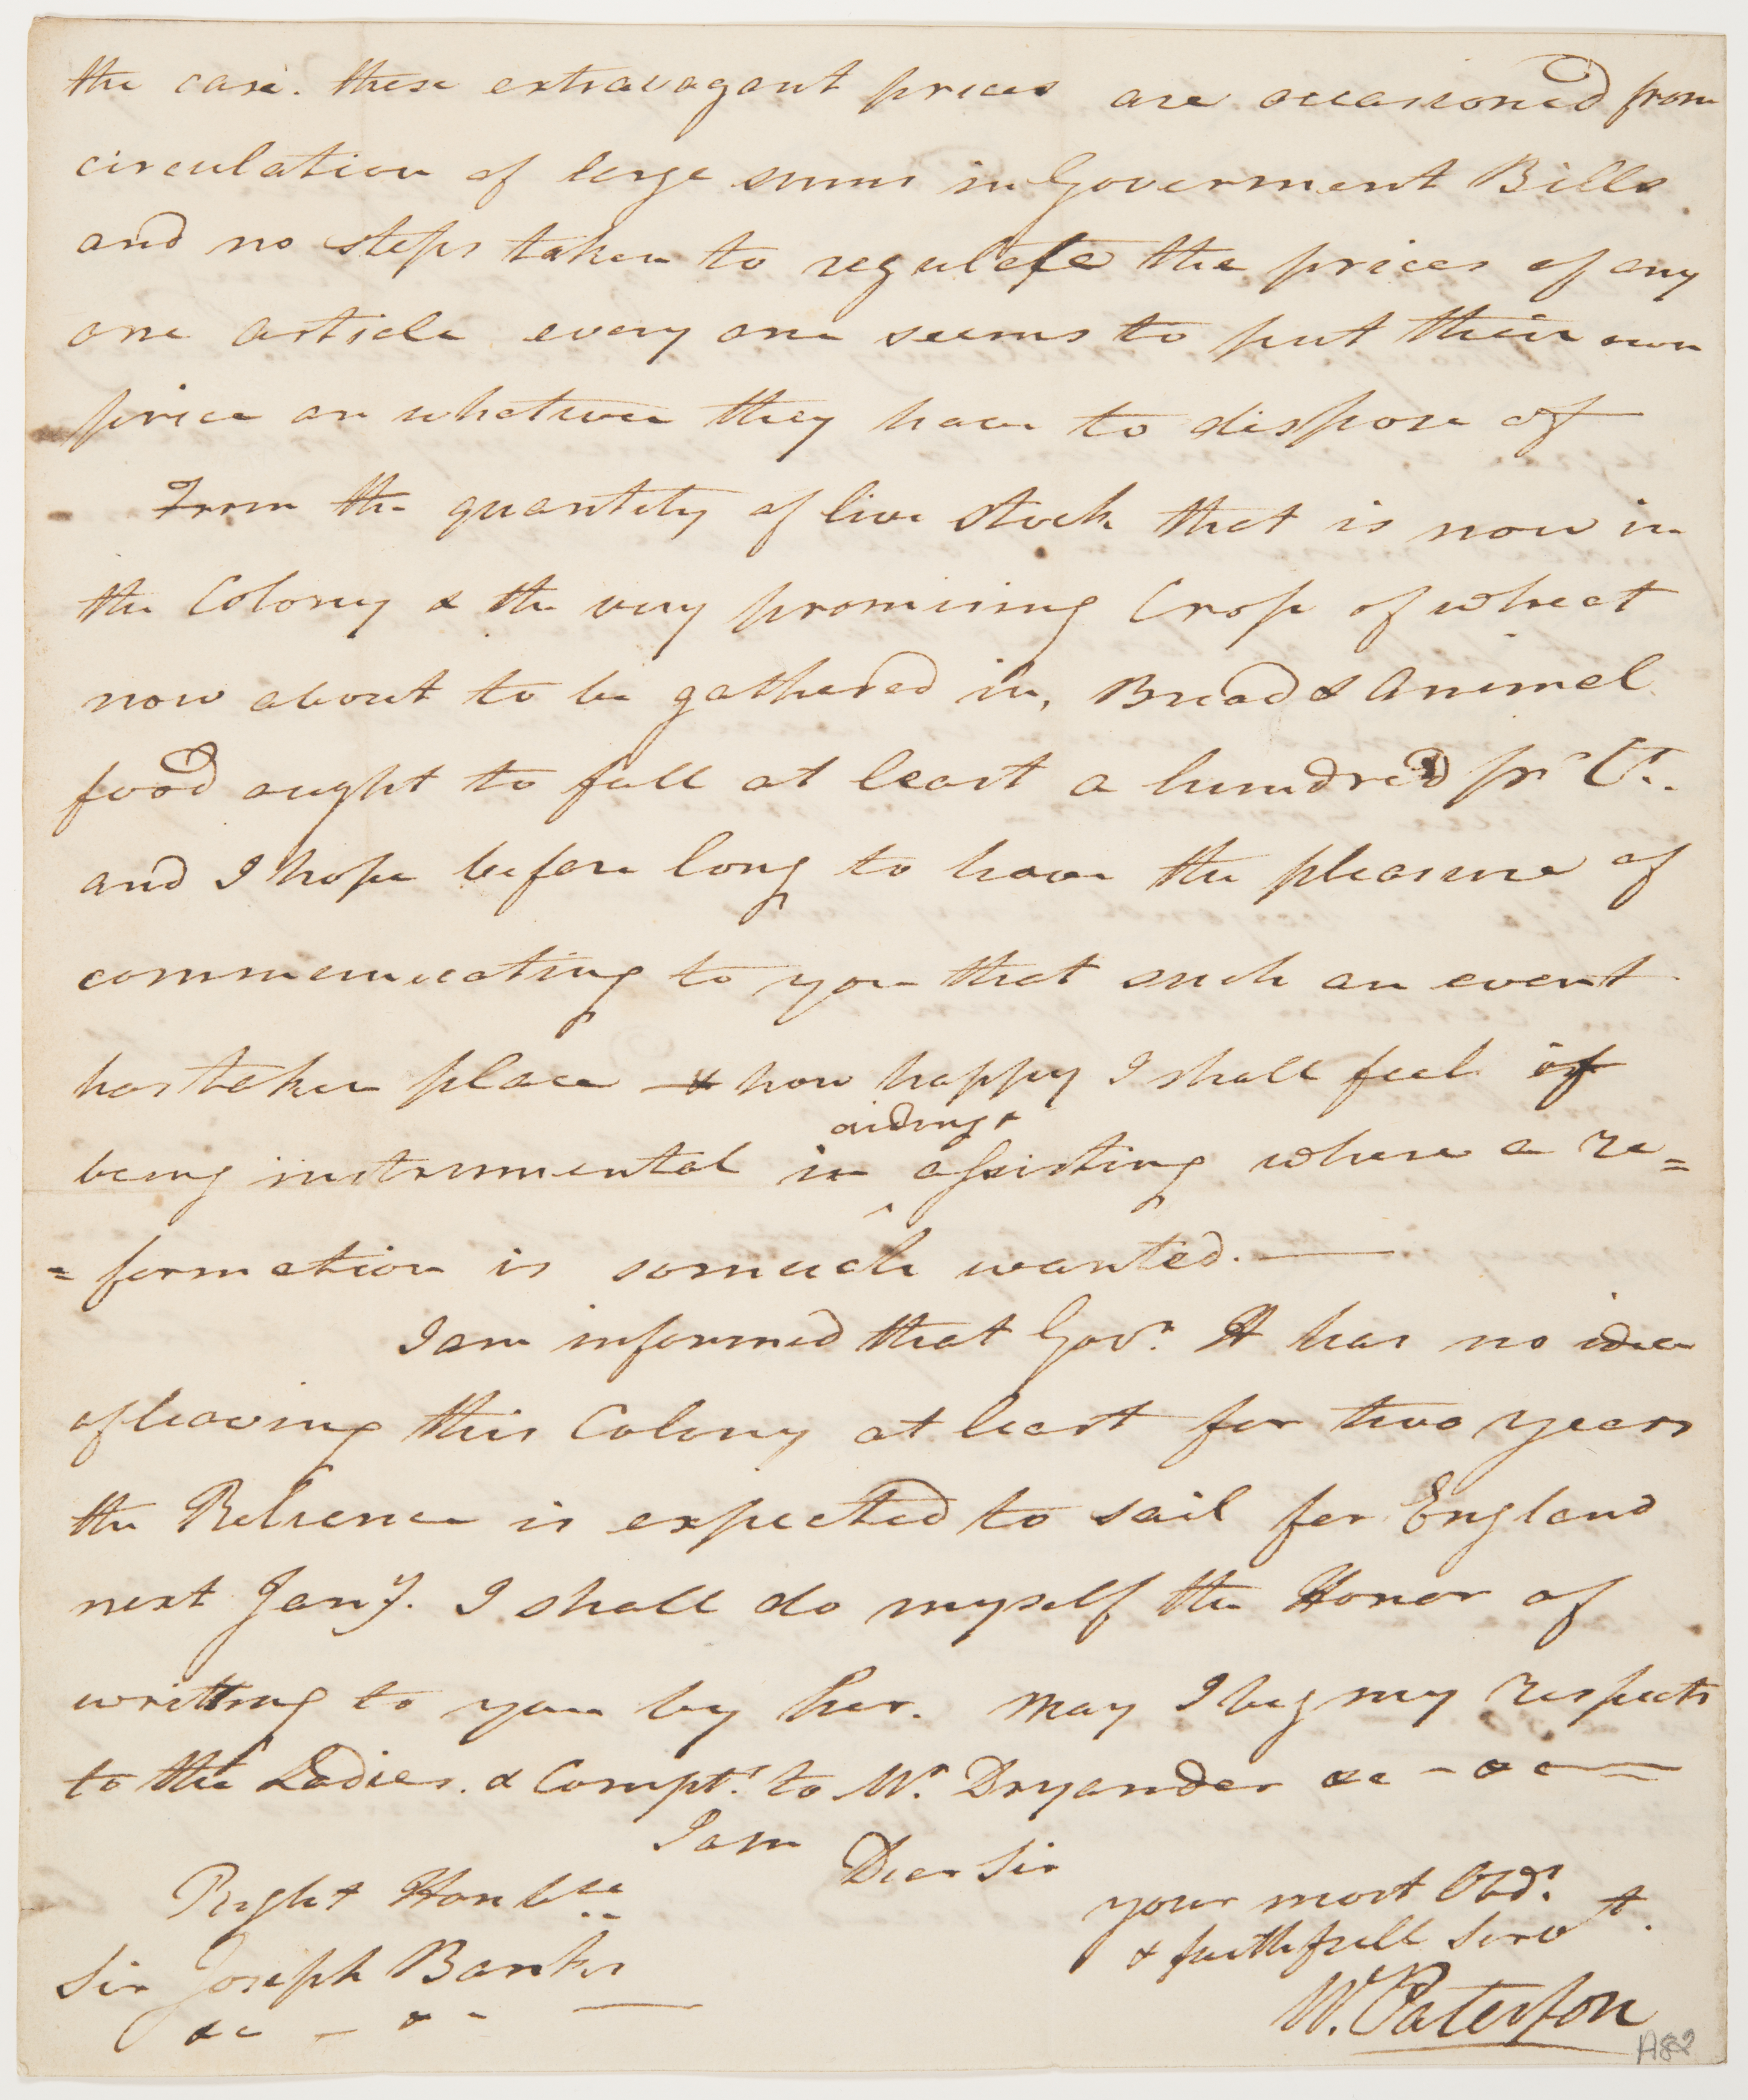 the case. these extravagant prices are occasioned from
circulation of large sums in Goverment Bills
and no steps taken to regulate the prices of any
one article every one seems to put their own
price on whatever they have to dispose of
From the quantity of live stock that is now in
the Colony & the very promising Crop of wheat
now about to be gathered in, Bread & Animal
food aught to fall at least a hundred pr Ct.
and I hope before long to have the pleasure of
communicating to you that such an event
has taken place & how happy I shall feel if
aiding &
being instrumental in assisting where a re=
=formation is so much wanted.
I am informed that Govr. H has no idea
of leaving this Colony at least for two years
the Reliance is expected to sail for England
next Jany. I shall do myself the Honor of
writting to you by her. May I beg my respects
to the Ladies. & Compts. to Mr. Dryander &c - &c
I am
Dear Sir
Right Honble
your most Obdt.
& faithfull Servt.
Sir Joseph Banks
&c - &c
W. Paterson
A82